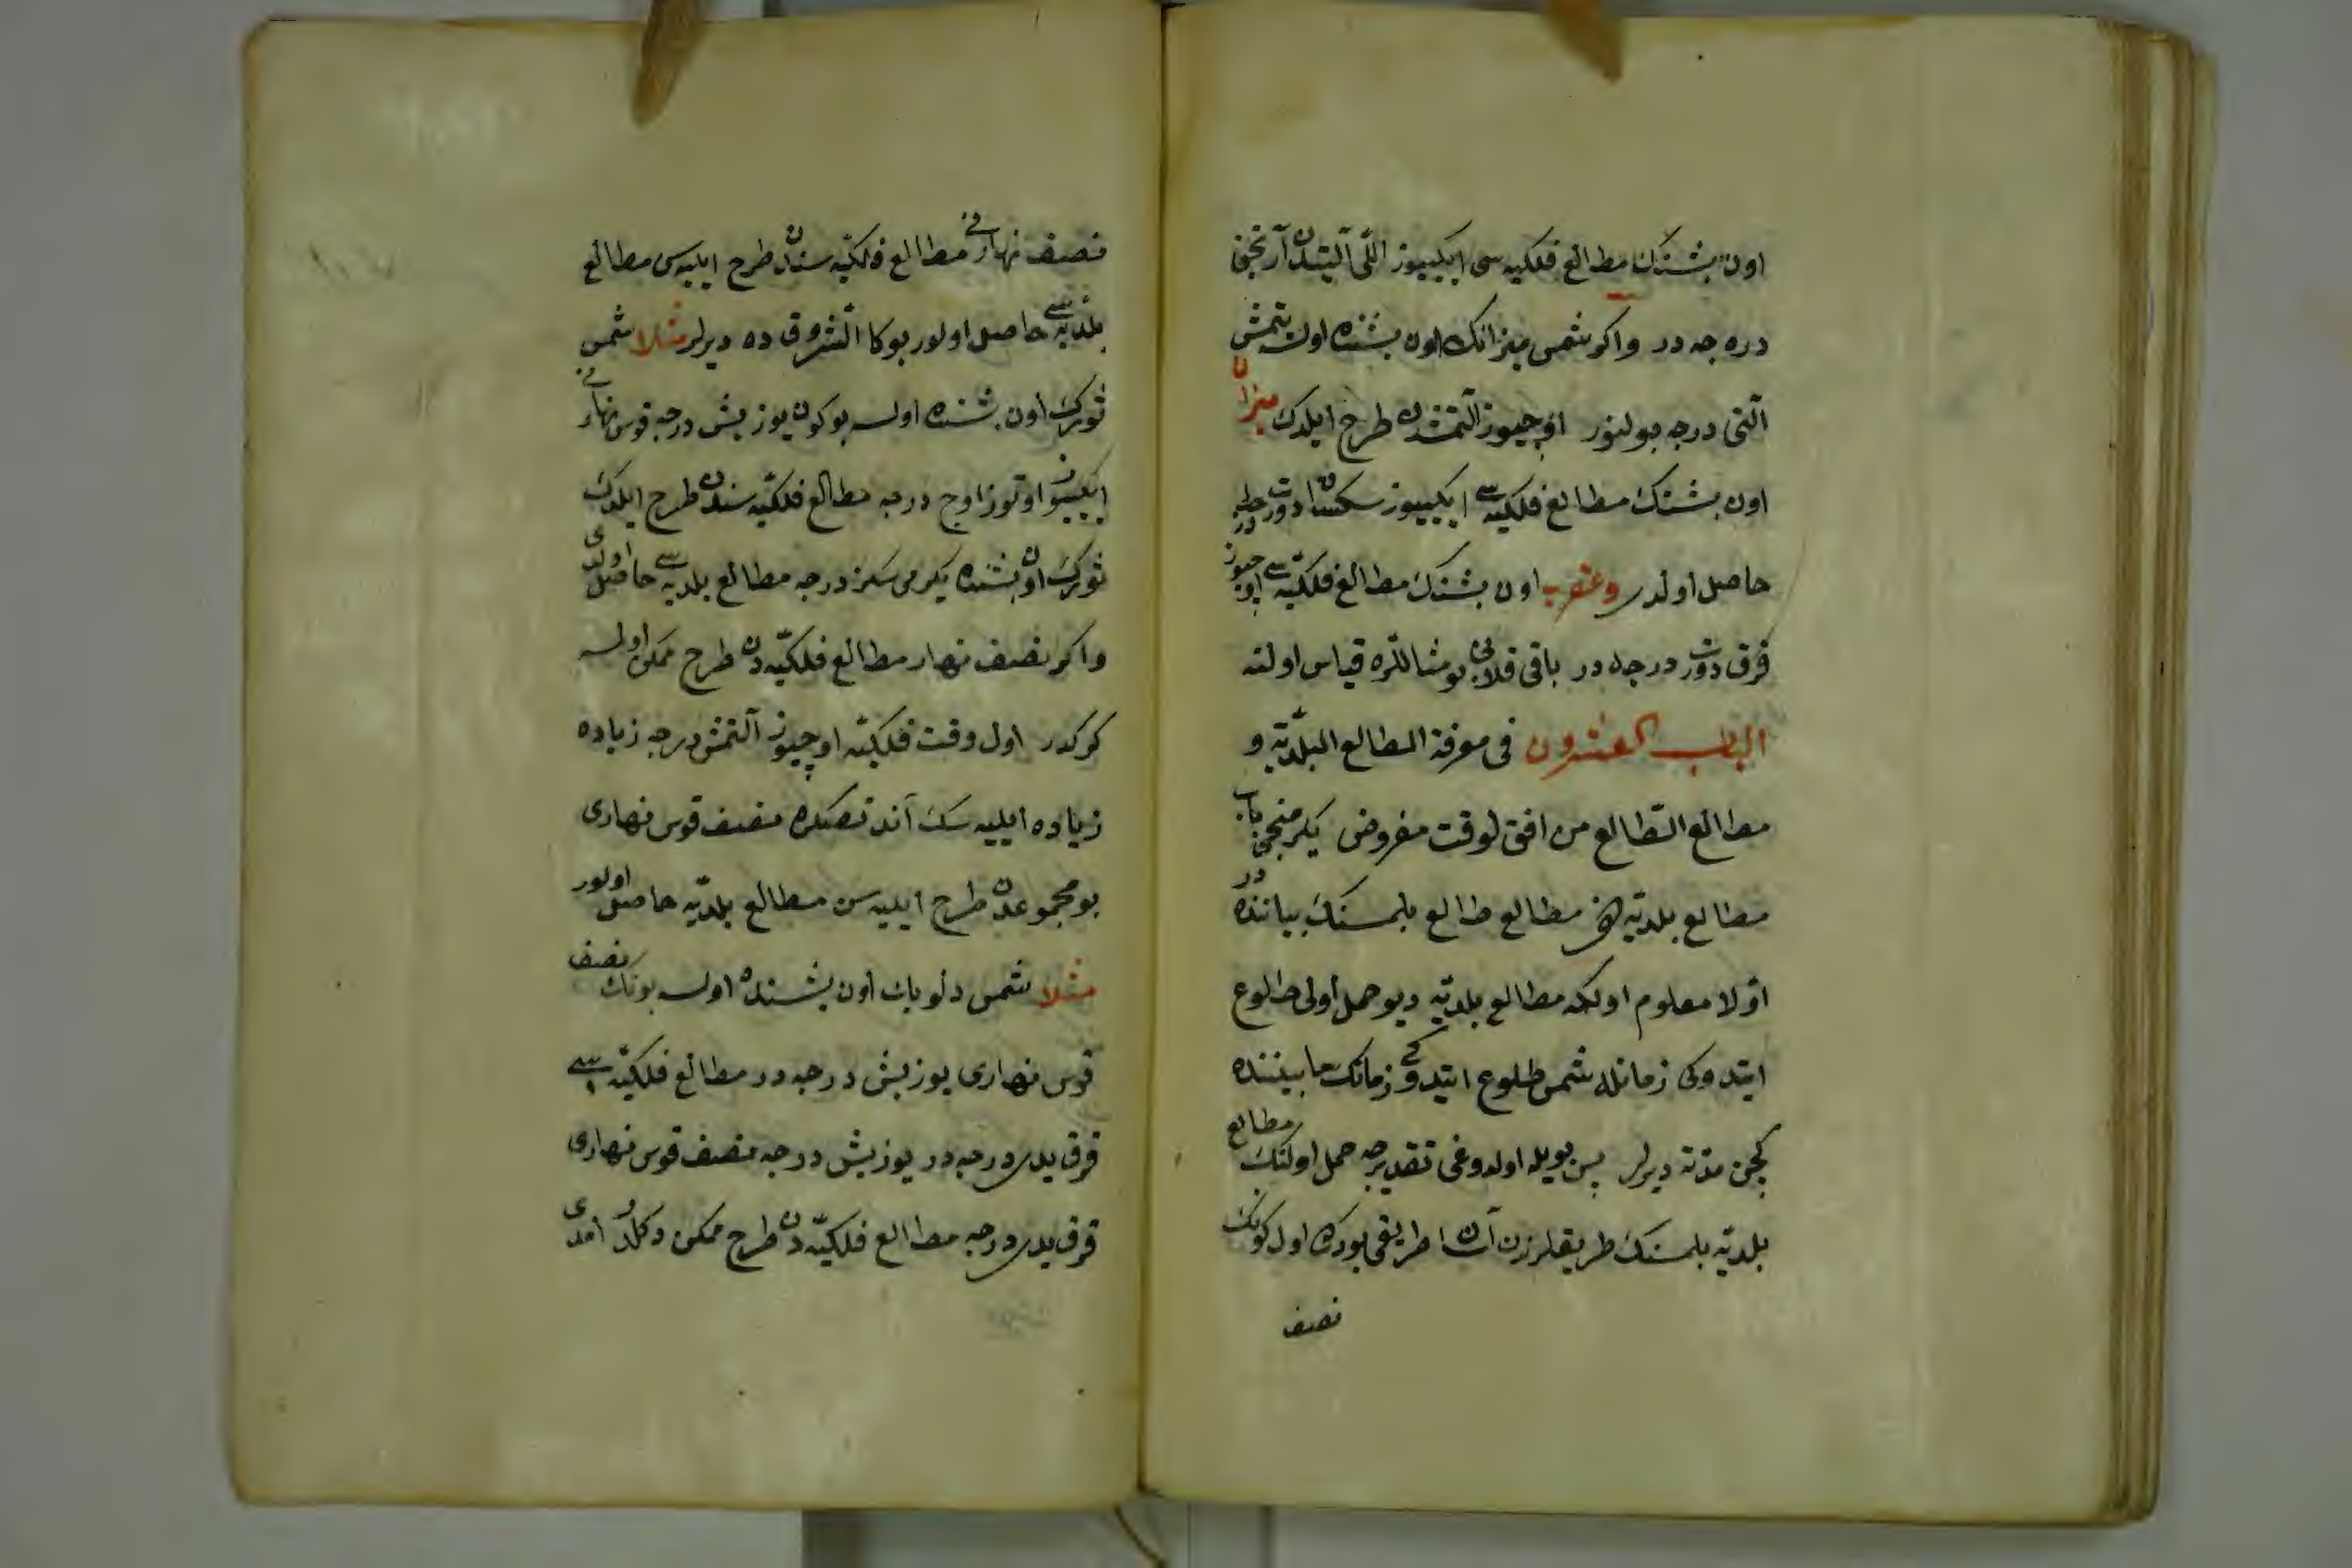 اون بشنك مطالع فلكيه سى ايكييوز اللى آلتيدن آرتجق
دره جه در واكر شمس ميزانك اون بشنده اولسه يتمش
آلتى درجه بولنور اوچيوز آلتمشدن طرح ايلدك ميزان
اون بشنك مطالع فلكيه سى ايكييوز سكسان دورت درجه در
حاصل اولدى وعقرب اون بشنك مطالع فلكيه سى اوچيوز
قرق دورت درجه در باقى قلانى بو مثاللره قياس اولنه
الباب العشرون فى معرفة المطالع البلديّه و
مطالع الطالع من افق لوقت مفروض يكرمنجى باب
مطالع بلديّه مطالع طالع بلمسنك بياننده در
اوّلا معلوم اولكه مطالع بلديّه ديو حمل اولى طلوع
ايتدوكى زمانله شمس طلوع ايتدوكى زمانك مابيننده
كچن مدته ديرلر پس بويله اولدوغى تقديرجه حمل اولنك مطالع
بلديّه بلمسنك طريقلرندن آسان طريقى بودركه اول كونك
نصف
نصف نهارنى مطالع فلكيّه سندن طرح ايليه س مطالع
بلديه سى حاصل اولور بوكا الشروق ده ديرلر مثلا شمس
ثورك اون بشنده اولسه بوكون يوز بش درجه قوس نهارنى
ايكييوز اوتوز اوج درجه مطالع فلكيّه سندن طرح ايلدك
ثورك اون بشنده يكرمى سكز درجه مطالع بلديه سى حاصل اولدى
واكر نصف نهار مطالع فلكيّه دن طرح ممكن اولسه
كركدر اول وقت فلكيّه اوچيوز آلتمش درجه زياده
زياده ايليه سك آندنصكره نصف قوس نهارى
بو مجموعدن طرح ايليه سن مطالع بلديّه حاصل اولور
مثلا شمس دلو باك اون بشنده اولسه بونك نصف
قوس نهارى يوز بش درجه در مطالع فلكيّه سى
قرق يدى درجه در يوز بش درجه نصف قوس نهارى
قرق يدى درجه مطالع فلكيّه دن طرح ممكن دكلدر امدى